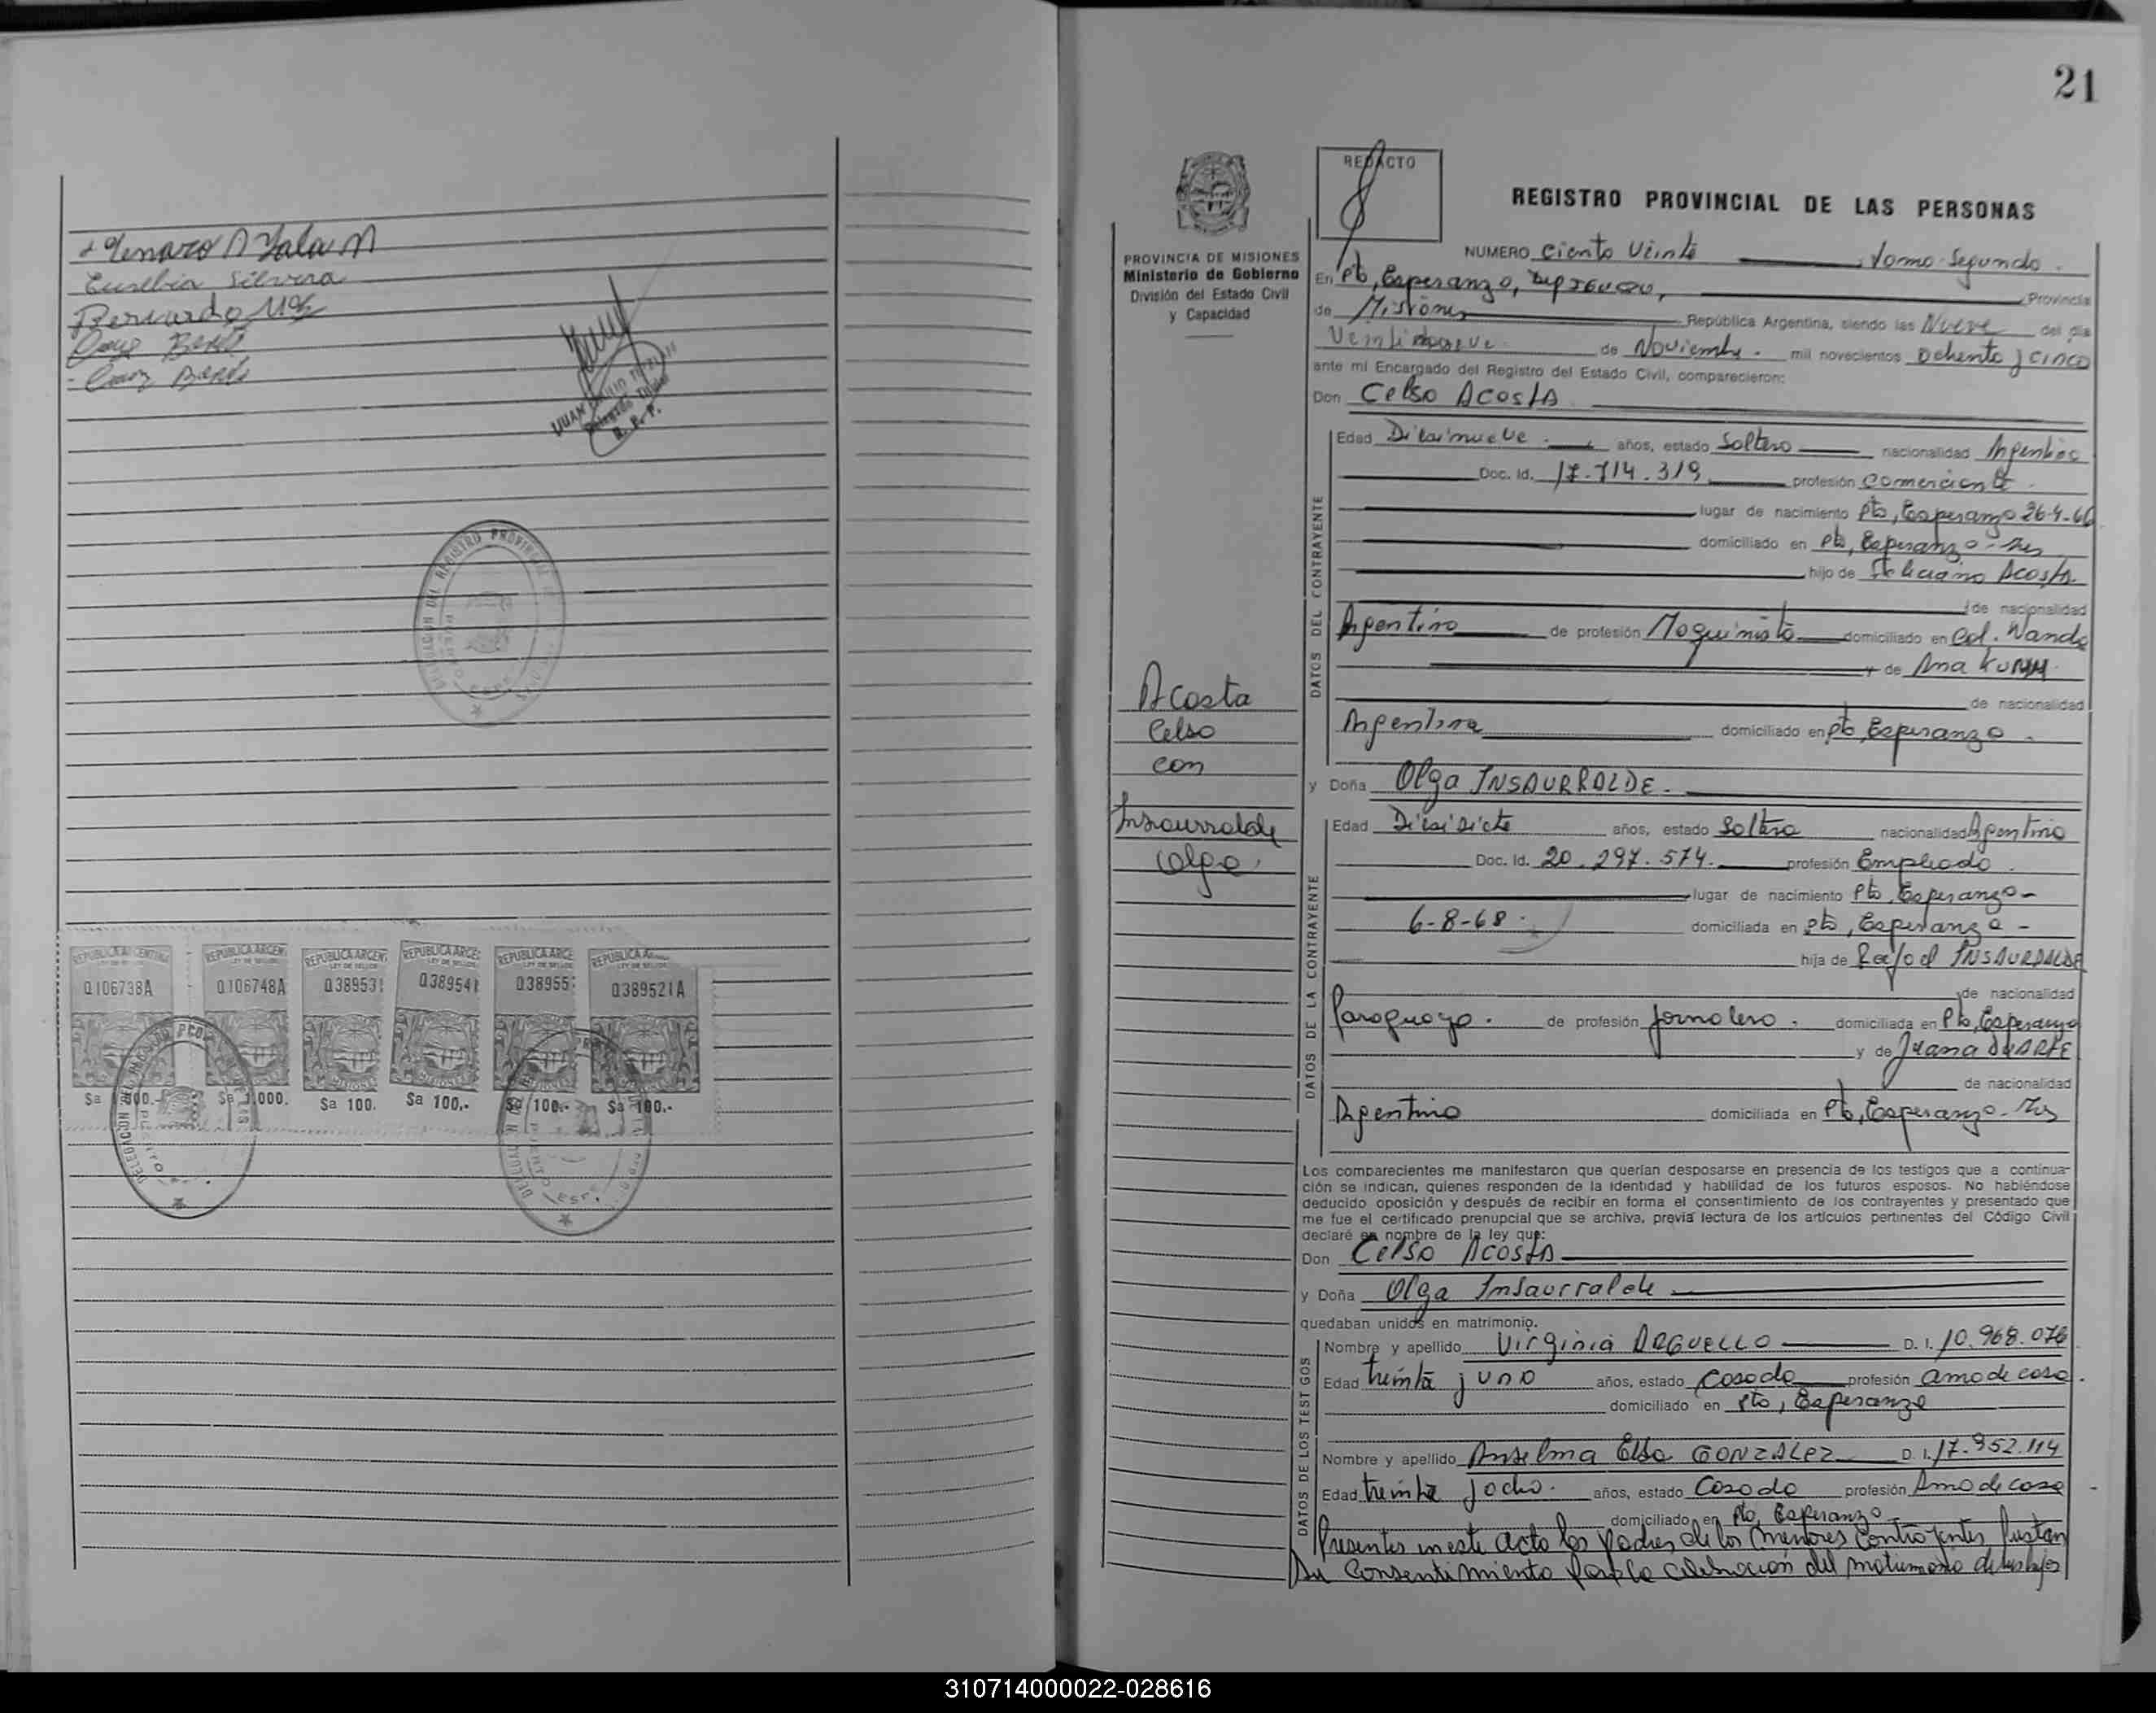 Eusebia Silvera
Bernardo
REPUBLICA ARGENTINA
REPUBLICA ARGEN
REPUBLICA ARGEN
REPUBLICA ARGE
REPUBLICA ARGE
REPUBLICA A
0106738A
0106748A
038953
038954
038955
0389521A
Sa 1.000.
Sa 100.
Sa 100,-
Sa 100.-
Sa 100.-
21
REDACTO
REGISTRO PROVINCIAL DE LAS PERSONAS
PROVINCIA DE MISIONES
Ministerio de Gobierno
División del Estado Civil
y Capacidad
NUMERO Ciento Veinte tomo Segundo.
En Pto, Esperanza, Provincia
de Misiones República Argentina, siendo las Nueve del día
Veintinueve de Noviembre. mil novecientos Ochenta y cinco
ante mi Encargado del Registro del Estado Civil, comparecieron:
Don Celso ACOSTA
DATOS DEL CONTRAYENTE
Edad Diecinueve años, estado Soltero nacionalidad Argentino
Doc. Id. 17.714.319 profesión Comerciante
lugar de nacimiento Pto, Esperanza 26-4-66
domiciliado en Pto, Esperanza - Mes
hijo de Feliciano Acosta
de nacionalidad
Argentino de profesión Maquinista domiciliado en Col. Wanda
y de Ana
de nacionalidad
Argentina domiciliado en Pto, Esperanza.
Acosta
Celso
con
Insaurralde
Olga
y Doña Olga INSAURRALDE.
DATOS DE LA CONTRAYENTE
Edad Diecisiete años, estado Soltera nacionalidad Argentina
Doc. Id. 20.297.574. profesión Empleada
lugar de nacimiento Pto, Esperanza-
6-8-68. domiciliada en Pto, Esperanza -
hija de Rafael INSAURRALDE
de nacionalidad
Paraguaya. de profesión Jornalero. domiciliada en Pto, Esperanza
y de Juana DUARTE
de nacionalidad
Argentina domiciliada en Pto, Esperanza-Mes
Los comparecientes me manifestaron que querían desposarse en presencia de los testigos que a continua-
ción se indican, quienes responden de la identidad y habilidad de los futuros esposos. No habiéndose
deducido oposición y después de recibir en forma el consentimiento de los contrayentes y presentado que
me fue el certificado prenupcial que se archiva, previa lectura de los artículos pertinentes del Código Civil
declaré en nombre de la ley que:
Don Celso Acosta
y Doña Olga Insaurralde
quedaban unidos en matrimonio.
DATOS DE LOS TESTIGOS
Nombre y apellido Virginia ARGUELLO D. I. 10.968.076
Edad treinta y uno años, estado Casada profesión ama de casa.
domiciliado en Pto, Esperanza
Nombre y apellido Anselma Elsa GONZALEZ D. I. 17.952.114
Edad treinta y ocho. años, estado Casada profesión Ama de casa
domiciliado en Pto, Esperanza
Presentes en este acto los padres de los menores contrayentes, Prestan
Su Consentimiento para la celebracion del matrimonio de sus hijos
310714000022-028616